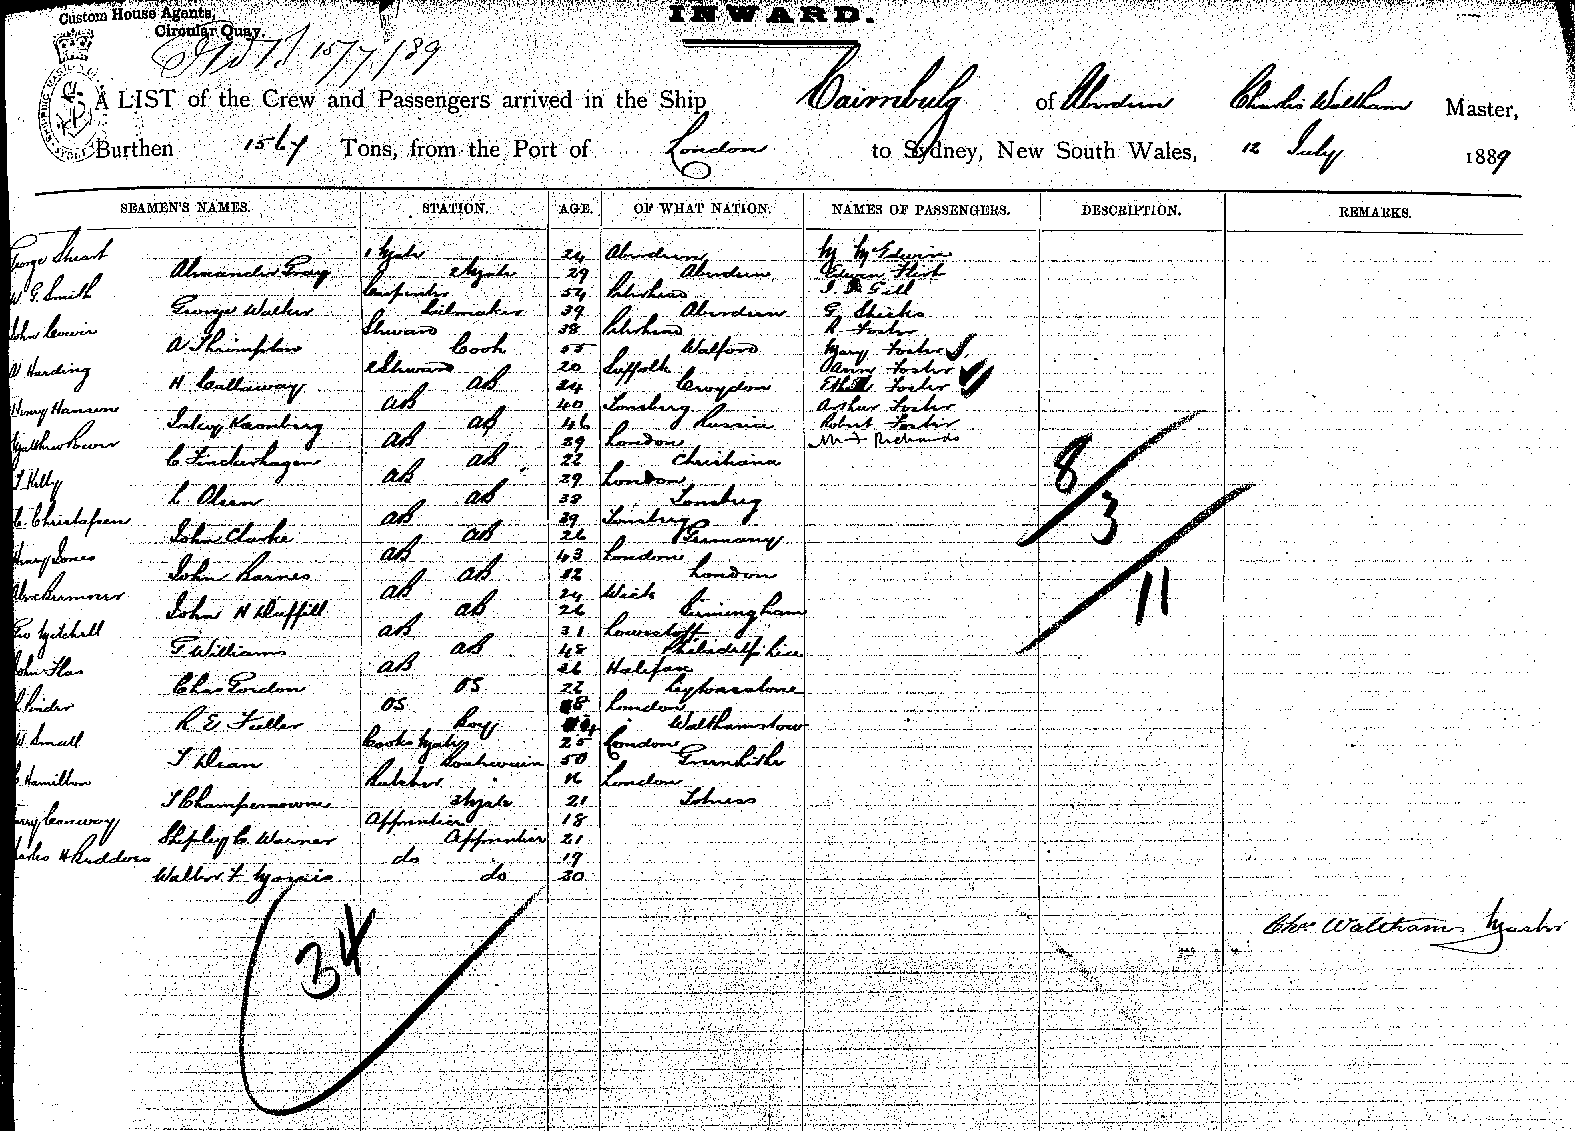 Custom House Agents,
Circular Quay.
INWARD.
15/7/89
A LIST of the Crew and Passengers arrived in the Ship Cairnbulg of Aberdeen Charles Waltham Master,
Burthen 1567 Tons, from the Port of London to Sydney, New South Wales, 12 July 1889
SEAMEN'S NAMES. STATION. AGE. OF WHAT NATION. NAMES OF PASSENGERS. DESCRIPTION. REMARKS.
George Stuart 1 Mate 24 Aberdeen
Alexander Gray 2 Mate 29 Aberdeen Edwin Flint
W G Smith Carpenter 54 Peterhead Gill
George Walker Sailmaker 39 Aberdeen G Shicks
John Cowie Steward 38 Peterhead R Foster
A Thrimpton Cook 55 Walford Mary Foster
W Harding 2 Steward 20 Suffolk Fanny Foster
H Callaway AB 24 Croydon Ethel Foster
Henry Hansen AB 40 Tonsberg Arthur Foster
Kronberg AB 46 Russia Robert Foster
Matthew Power AB 29 London Richards
C Finckenhagen AB 22 Christiana
T Kelly AB 29 London
L Olsen AB 38 Tonsberg
C Christofsen AB 39 Tonsberg
John Clarke AB 26 Germany
Henry Jones AB 43 London
John Barnes AB 32 London
AB 24 Wick
John H Duffill AB 26 Birmingham
Geo Mitchell AB 31 Lowestoft
G Williams AB 48 Philadelphia
John Flas AB 26 Halifax
Chas Gordon OS 22 Leytonstone
Pinder OS 18 London
R E Fuller Boy Walthamstow
W Small Cooks Mate 25 London
T Dean Boatswain 50 Greenhithe
C Hamilton Butcher 16 London
T Champernowne 3 Mate 21 Totness
Harry Conway Apprentice 18
Shipley C Warner Apprentice 21
Charles H Ruddow do 19
Walter F Morris do 20
8
3
11
34
Chas Waltham Master